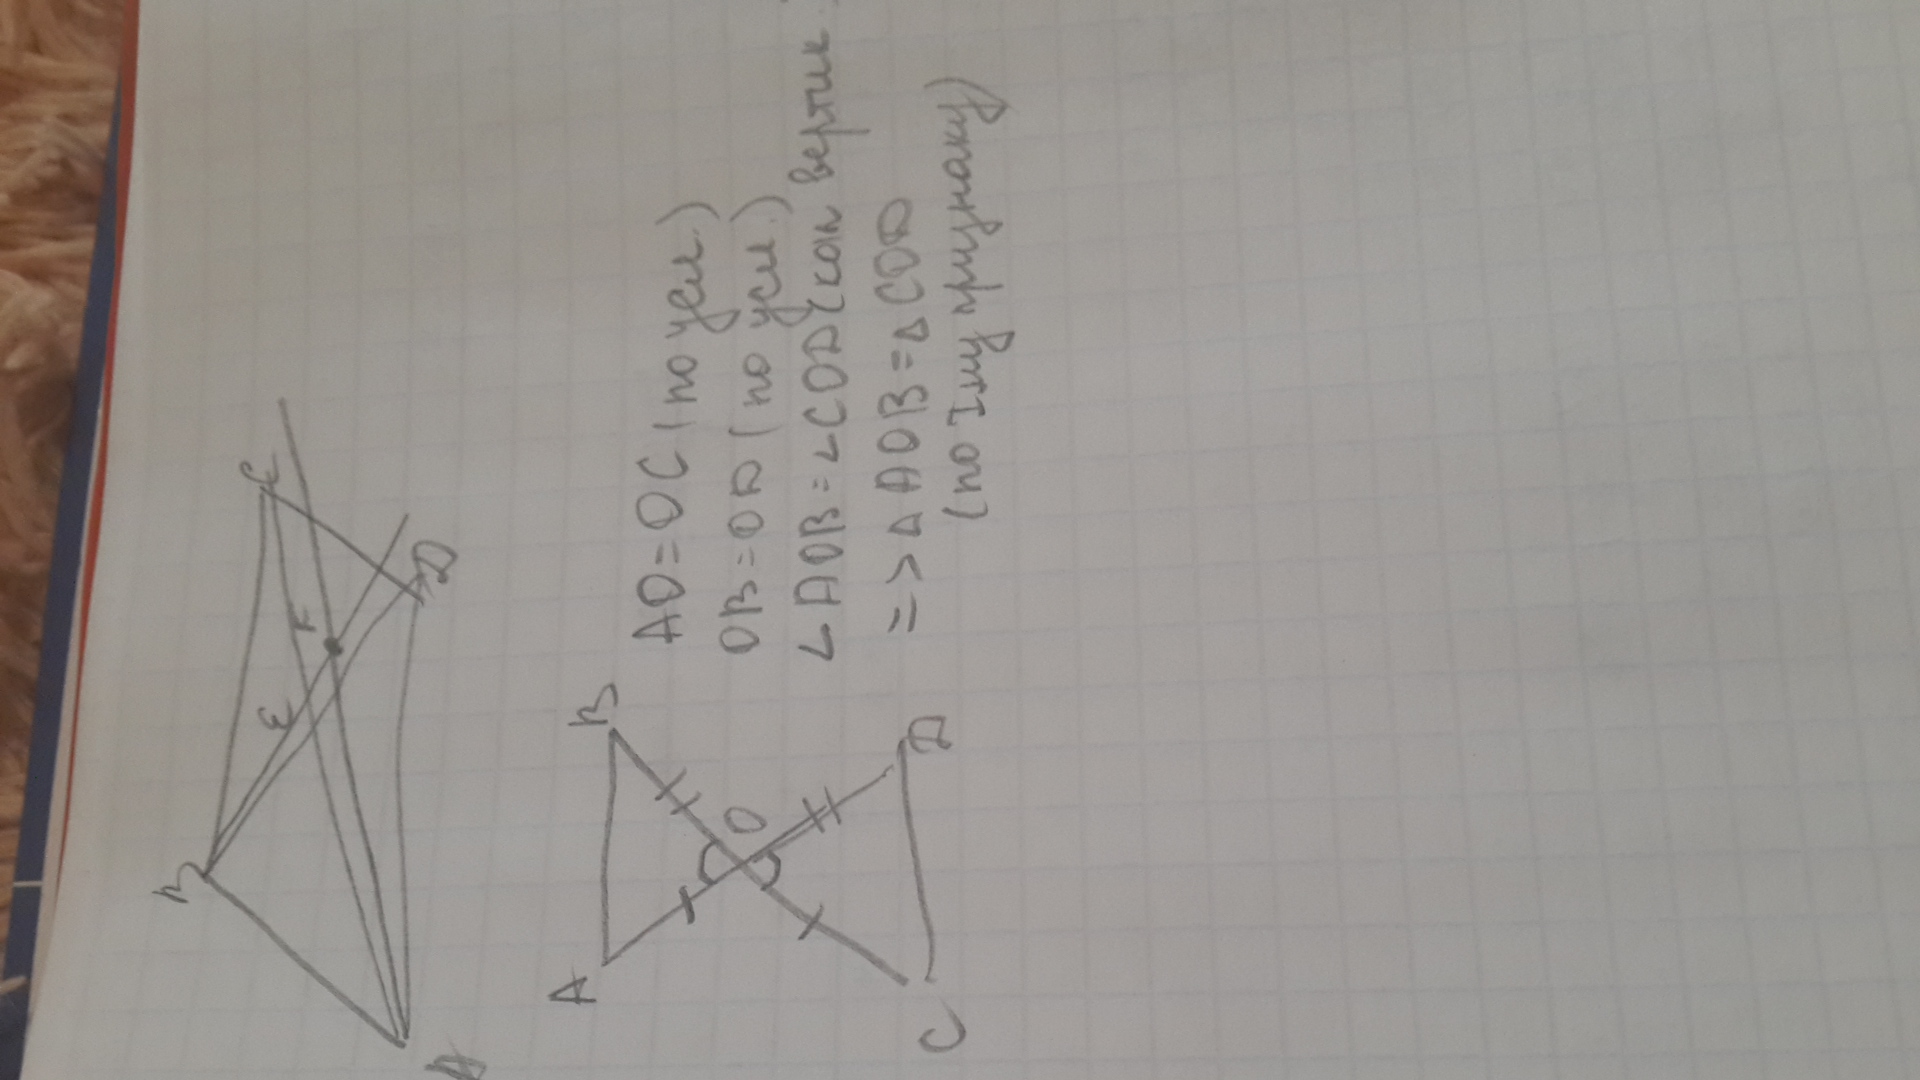 B
C
E
F
D
A
A
B
O
C
D
AO=OC (по усл.)
OB=OD (по усл.)
∠AOB=∠COD (как вертик.
=> △AOB=△COD
(по Iму признаку)